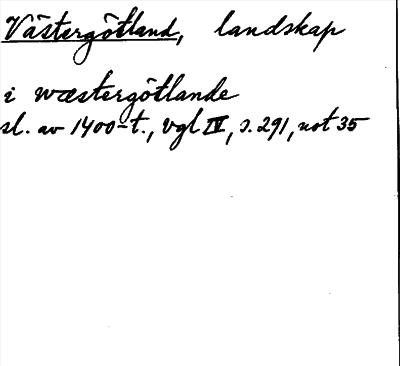 Västergötland, landskap
i wæstergötlande
sl. av 1400-t., vgl IV, s. 291, not 35